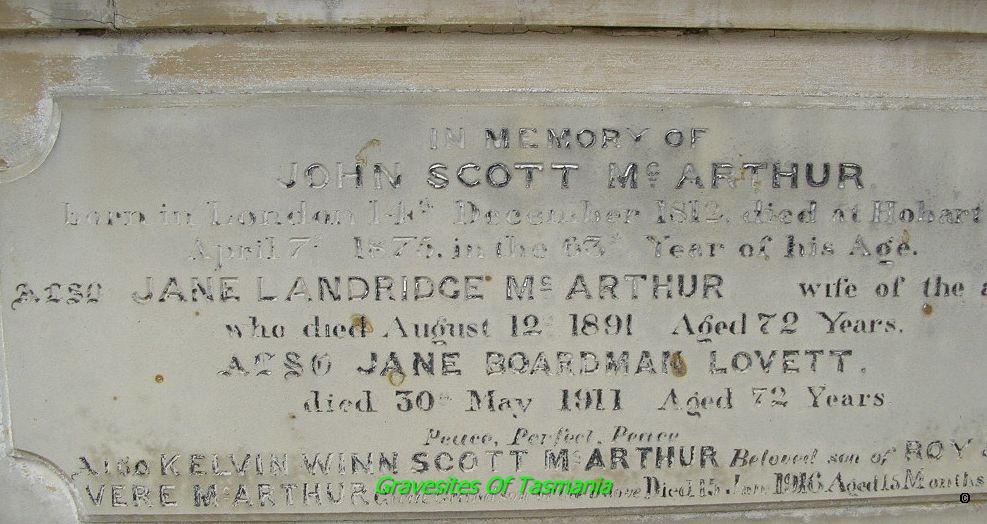 IN MEMORY OF
JOHN SCOTT Mc ARTHUR
born in London 14th December 1812, died at Hobart
April 7th 1875, in the 63rd Year of his Age.
ALSO JANE LANDRIDGE Mc ARTHUR wife of the
who died August 12th 1891 Aged 72 Years.
ALSO JANE BOARDMAN LOVETT.
died 30th May 1911 Aged 72 Years
Peace, Perfect, Peace
Also KELVIN WINN SCOTT Mc ARTHUR Beloved son of ROY &
VERE Mc ARTHUR Died 15 Jan 1916 Aged 15 Months
Gravesites Of Tasmania
©